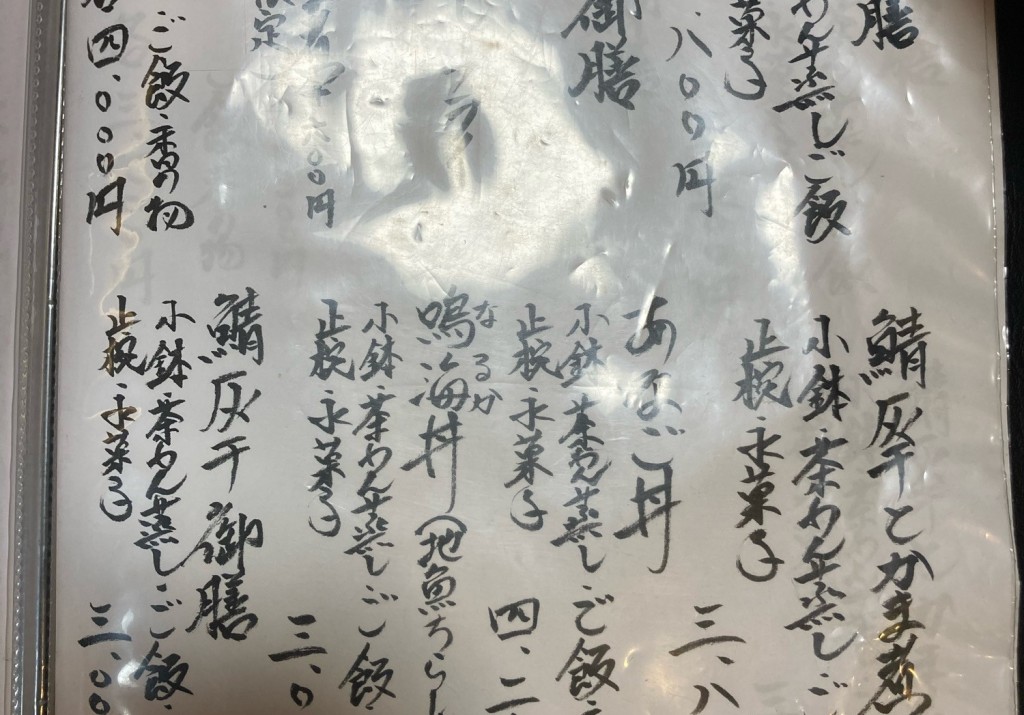 膳
わん蒸しご飯
菓子
八〇〇円
御膳
〇〇円
ご飯・香の物
四、〇〇〇円
鯖灰干とかま煮
小鉢・茶わん蒸しご
止椀・水菓子
三、八
あなご丼
小鉢・茶わん蒸しご飯
止椀・水菓子
四、二
なるか
鳴海丼(地魚ちらし
小鉢・茶わん蒸しご飯
止椀・水菓子
三、〇
鯖灰干御膳
小鉢・茶わん蒸しご飯・
止椀・水菓子
三、〇〇